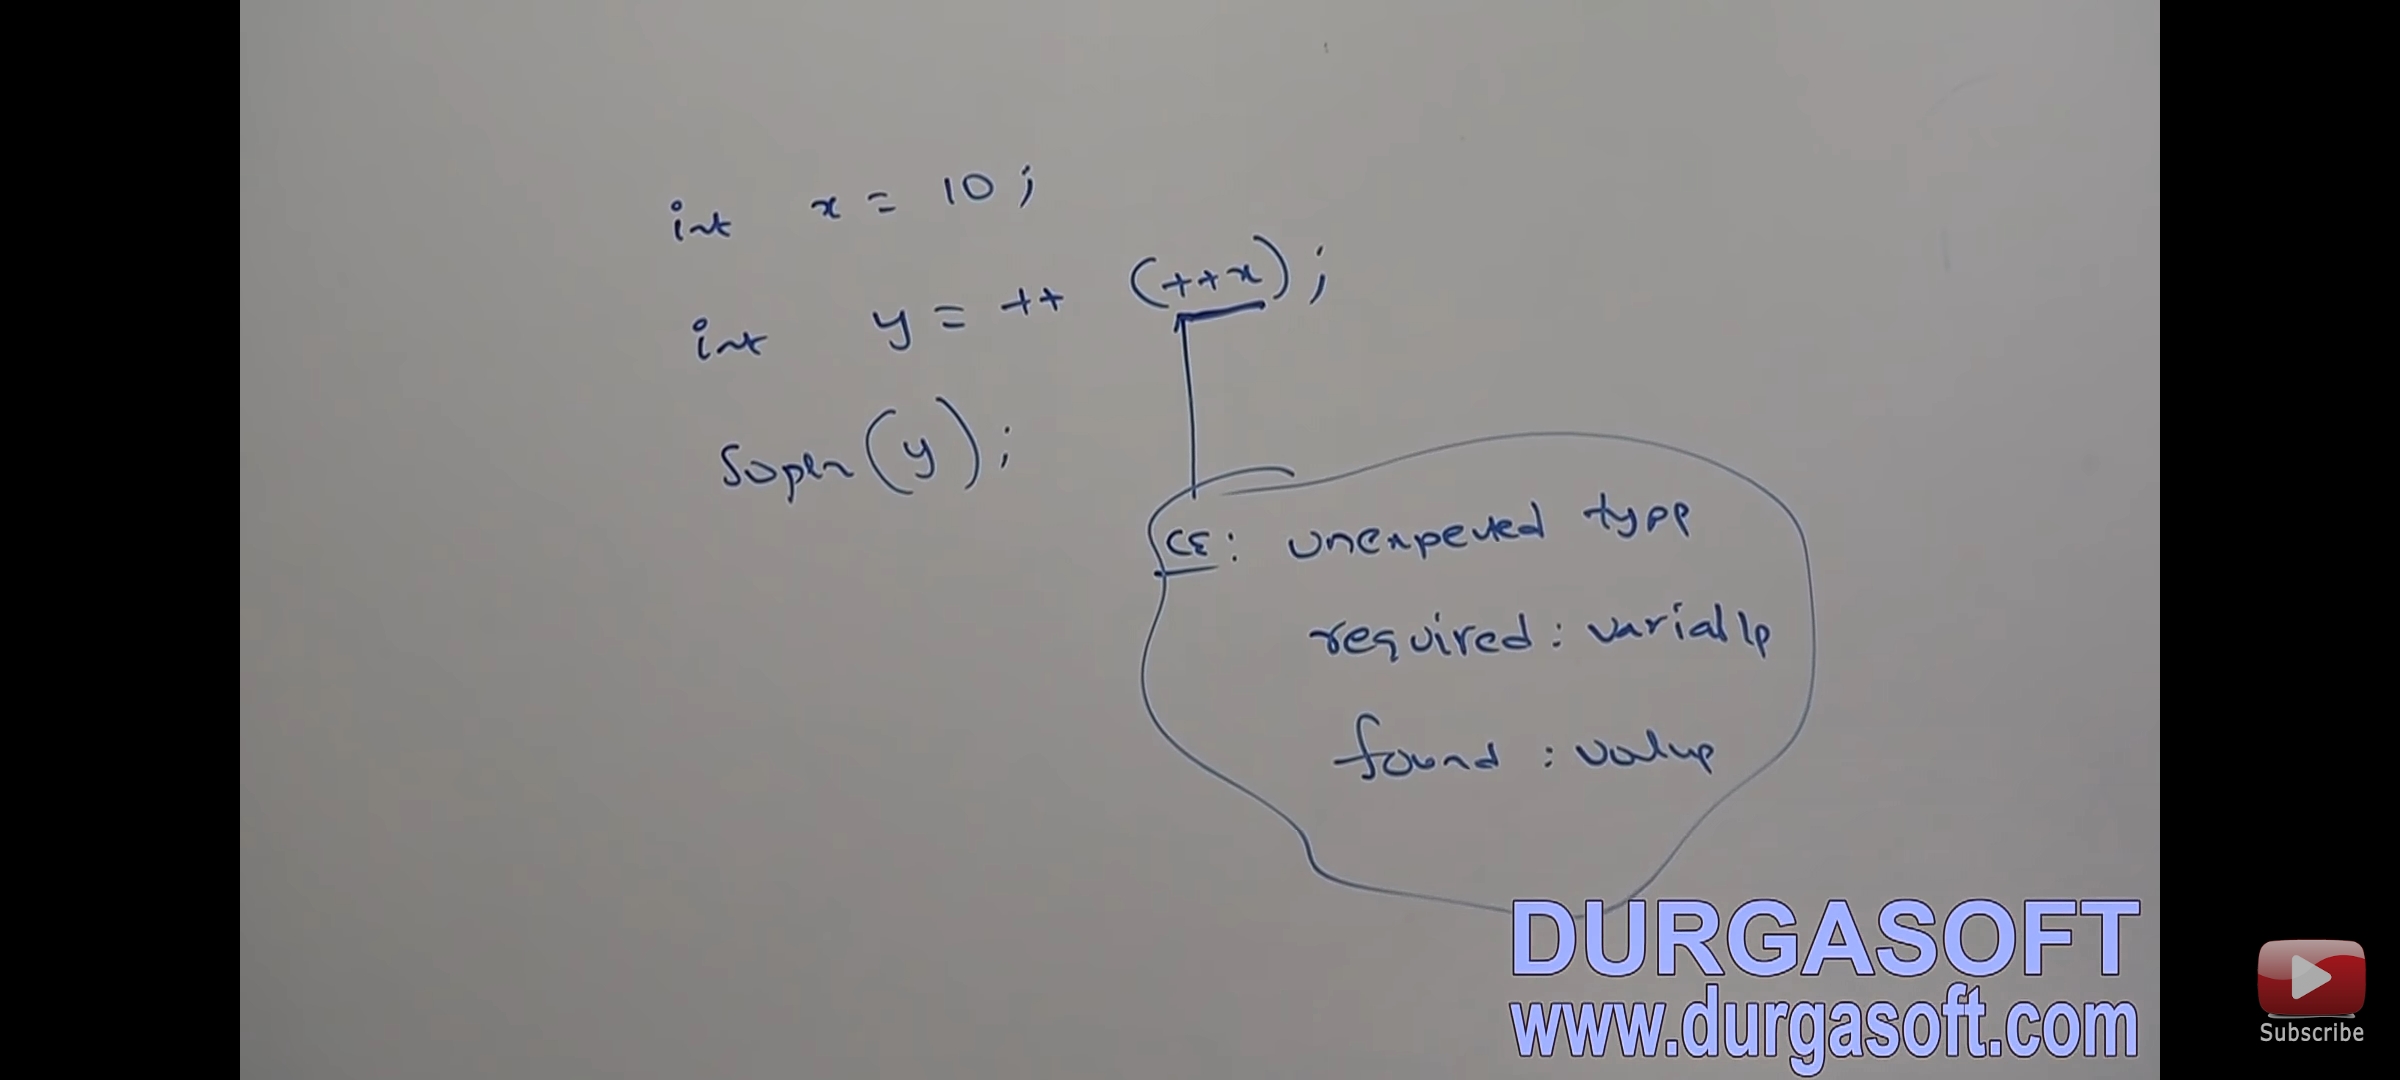 int x = 10 ;
int y = ++ (++x) ;
Sopln (y) ;
CE : unexpected type
required : variable
found : value
DURGASOFT
www.durgasoft.com
Subscribe